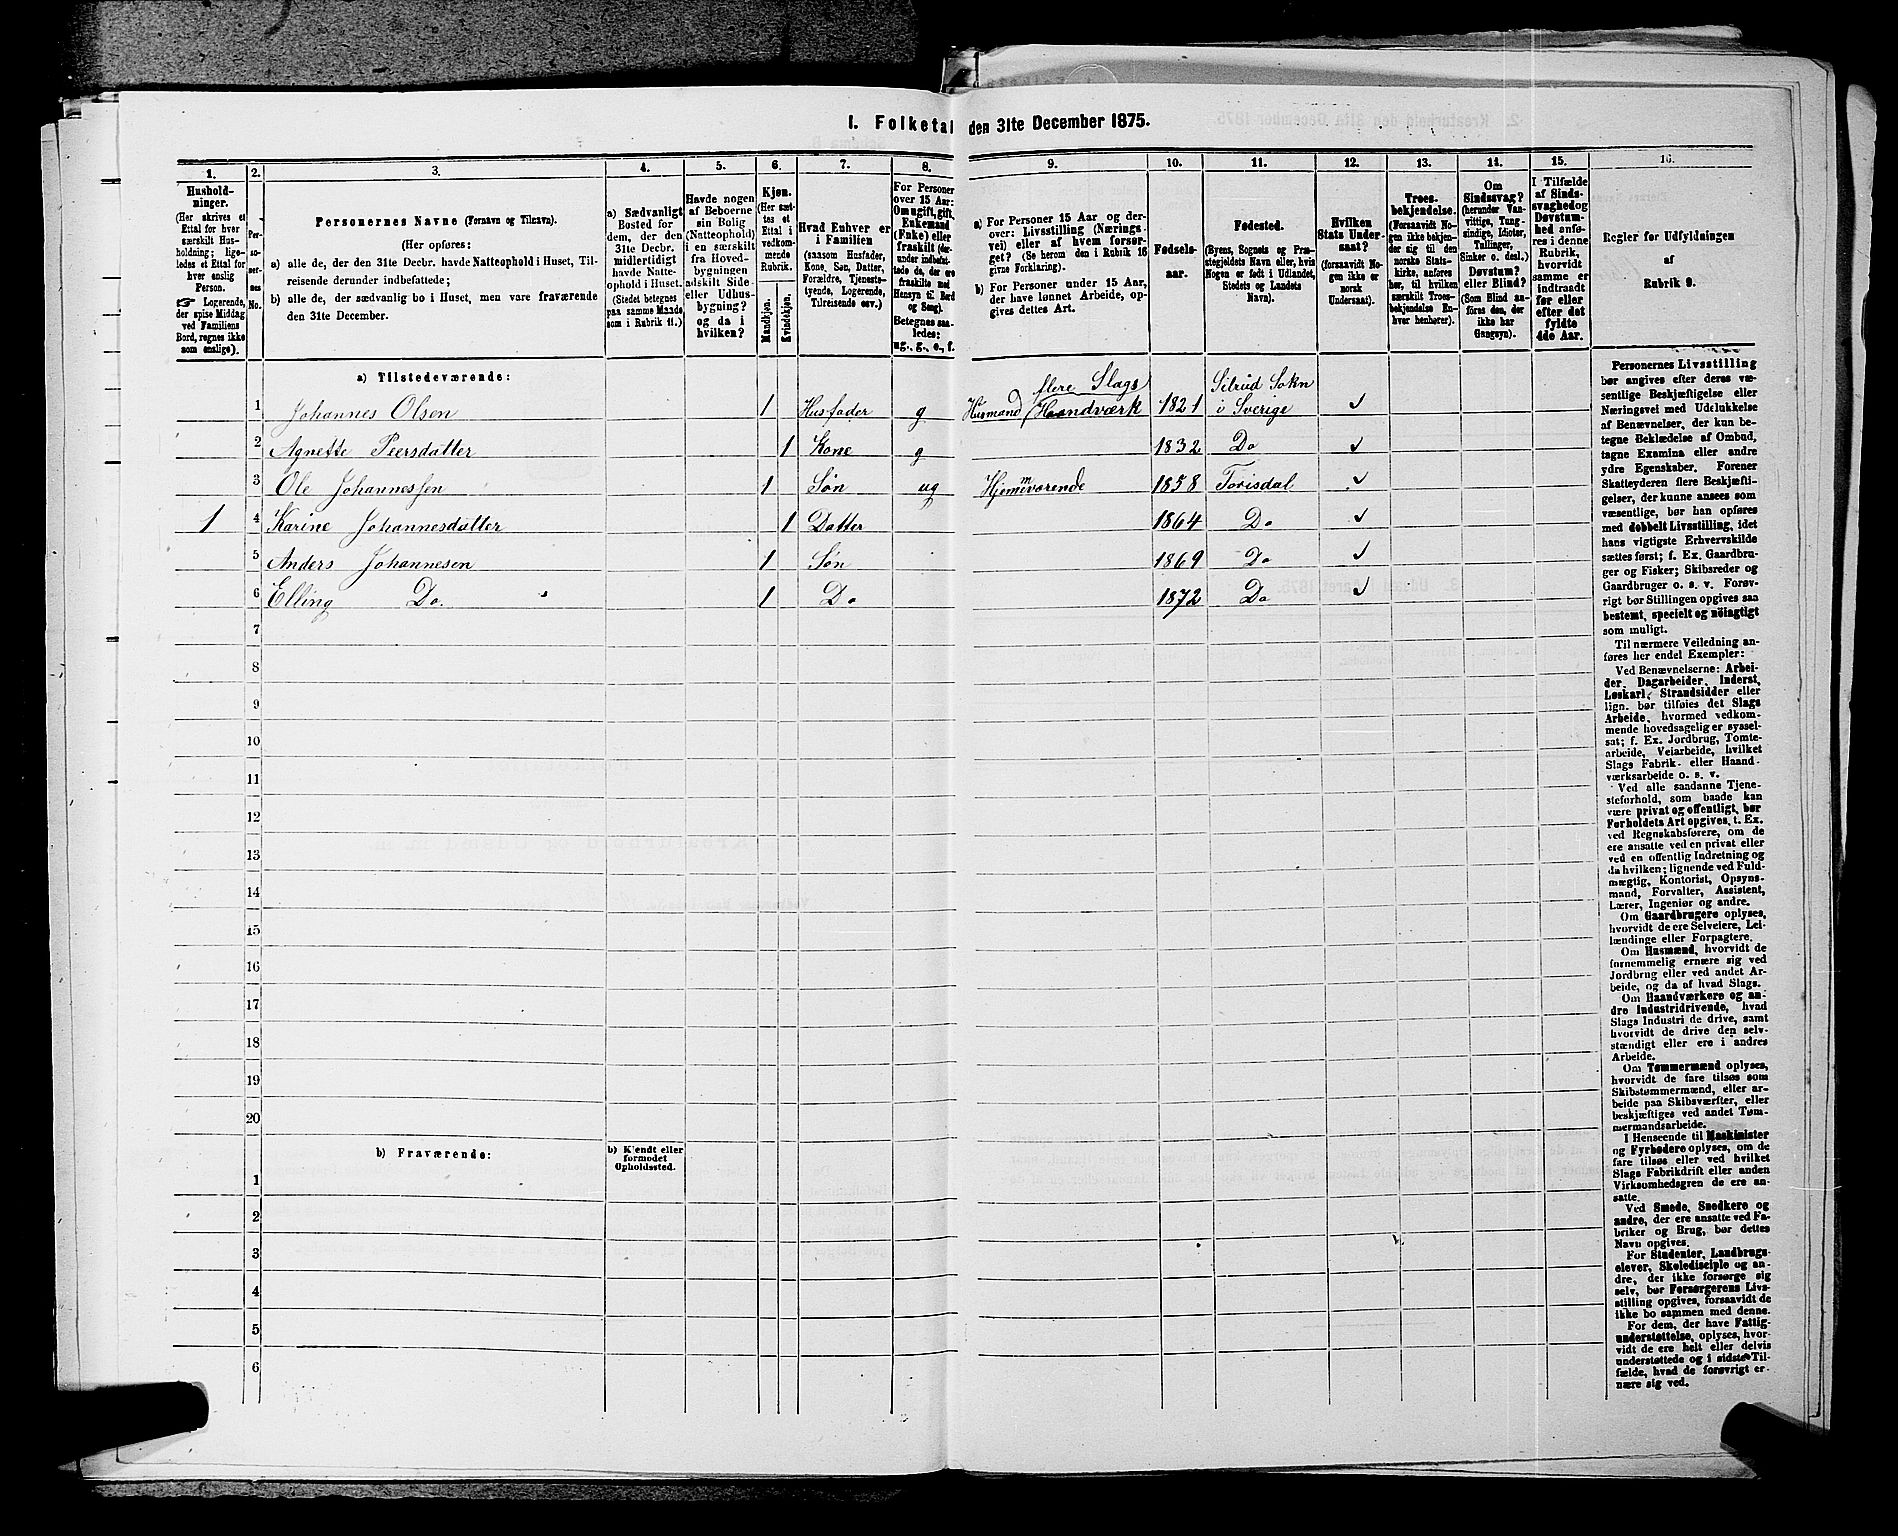 1. Folketal den 31te December 1875.
1. 2. 3. 4. 5. 6. 7. 8. 9. 10. 11. 12. 13. 14. 15. 16.
Hushold-
ninger.
(Her skrives et
Ettal for hver
særskilt Hus-
holdning; lige-
ledes et Ettal for
hver enslig
Person.
☞ Logerende,
der spise Middag
ved Familiens
Bord, regnes ikke
som enslige).
Per-
so-
ner-
nes
No.
Personernes Navne (Fornavn og Tilnavn).
(Her opføres:
a) alle de, der den 31te Decbr. havde Natteophold i Huset, Til-
reisende derunder indbefattede;
b) alle de, der sædvanlig bo i Huset, men vare fraværende
den 31te December.
a) Sædvanligt
Bosted for
dem, der den
31te Decbr.
midlertidigt
havde Natte-
ophold i Huset.
(Stedet betegnes
paa samme Maade
som i Rubrik 11.)
Havde nogen
af Beboerne
sin Bolig
(Natteophold)
i en særskilt
fra Hoved-
bygningen
adskilt Side-
eller Udhus-
bygning?
og da i
hvilken?
Kjøn.
(Her sæt-
tes et
Ettal i
vedkom-
mende
Rubrik.
Mandkjøn.
Kvindekjøn.
Hvad Enhver er
i Familien
(saasom Husfader,
Kone, Søn, Datter,
Forældre, Tjeneste-
tyende, Logerende,
Tilreisende osv.)
For Personer
over 15 Aar:
Om ugift, gift,
Enkemand
(Enke) eller
fraskilt (der-
under indbefat-
tede de, der ere
fraskilte med
Hensyn til Bord
og Seng).
Betegnes saa-
ledes:
ug., g., e., f.
a) For Personer 15 Aar og der-
over: Livsstilling (Nærings-
vei) eller af hvem forsør-
get? (Se herom den i Rubrik 16
givne Forklaring).
b) For Personer under 15 Aar,
der have lønnet Arbeide, op-
gives dettes Art.
Fødsels-
aar.
Fødested.
(Byens, Sognets og Præ-
stegjeldets Navn eller, hvis
Nogen er født i Udlandet,
Stedets og Landets
Navn).
Hvilken
Stats Under-
saat?
(forsaavidt No-
gen ikke er
norsk
Undersaat).
Troes-
bekjendelse.
(Forsaavidt No-
gen ikke bekjen-
der sig til den
norske Stats-
kirke, anføres
her, til hvilken
særskilt Troes-
bekjendelse En-
hver henhører).
Om
Sindssvag?
(herunder Van-
vittige, Tung-
sindige, Idioter,
Tullinger,
Sinker o. desl.)
Døvstum?
eller Blind?
(Som Blind an-
føres den, der
ikke har
Gangsyn).
I Tilfælde
af Sinds-
svaghed og
Døvstum-
hed anfø-
res i denne
Rubrik,
hvorvidt
samme er
indtraadt
før eller
efter det
fyldte
4de Aar.
Regler for Udfyldningen
af
Rubrik 9.
a) Tilstedeværende:
flere Slags Silrud Sokn
1 Johannes Olsen 1 Husfader g Husmand Haandværk 1821 i Sverige ✓
2 Agnette Peersdatter 1 Kone g 1832 Do ✓
3 Ole Johannessen 1 Søn ug Hjemmværende 1858 Torisdal ✓
1 4 Karine Johannesdatter 1 Datter 1864 Do ✓
5 Anders Johannesen 1 Søn 1869 Do ✓
6 Elling Do. 1 Do 1872 Do ✓
7
8
9
10
11
12
13
14
15
16
17
18
19
20
b) Fraværende:
b) Kjendt eller
formodet
Opholdssted.
1
2
3
4
5
6
Personernes Livsstilling
bør angives efter deres væ-
sentlige Beskjæftigelse eller
Næringsvei med Udelukkelse
af Benævnelser, der kun be-
tegne Beklædelse af Ombud,
tagne Examina eller andre
ydre Egenskaber. Forener
Skatteyderen flere Beskjæfti-
gelser, der kunne ansees som
væsentlige, bør han opføres
med dobbelt Livsstilling, idet
hans vigtigste Erhvervskilde
sættes først; f. Ex. Gaardbru-
ger og Fisker; Skibsreder og
Gaardbruger o. s. v. Forøv-
rigt bør Stillingen opgives saa
bestemt, specielt og nöiagtigt
som muligt.
Til nærmere Veiledning an-
føres her endel Exempler:
Ved Benævnelserne: Arbei-
der, Dagarbeider, Inderst,
Løskarl, Strandsidder eller
lign. bør tilføies det Slags
Arbeide, hvormed vedkom-
mende hovedsagelig er syssel-
sat; f. Ex. Jordbrug, Tomte-
arbeide, Veiarbeide, hvilket
Slags Fabrik- eller Haand-
værksarbeide o. s. v.
Ved alle saadanne Tjene-
steforhold, som baade kan
være privat og offentligt, bør
Forholdets Art opgives, t. Ex.
ved Regnskabsførere, om de
ere ansatte ved en privat eller
ved en offentlig Indretning og
da hvilken; lignende ved Fuld-
mægtig, Kontorist, Opsyns-
mand, Forvalter, Assistent,
Lærer, Ingeniør og andre.
Om Gaardbrugere oplyses,
hvorvidt de ere Selveiere, Lei-
lændinge eller Forpagtere.
Om Husmænd, hvorvidt de
fornemmelig ernære sig ved
Jordbrug eller ved andet Ar-
beide, og da af hvad Slags.
Om Haandværkere og an-
dre Industridrivende, hvad
Slags Industri de drive, samt
hvorvidt de drive den selv-
stændigt eller ere i andres
Arbeide.
Om Tømmermænd oplyses,
hvorvidt de fare tilsøs som
Skibstømmermænd, eller ar-
beide paa Skibsværfter, eller
beskjæftiges ved andet Tøm-
mermandsarbeide.
I Henseende til Maskinister
og Fyrbødere oplyses, om de
fare tilsøs eller ved hvilket
Slags Fabrikdrift eller anden
Virksomhedsgren de ere an-
satte.
Ved Smede, Snedkere og
andre, der ere ansatte ved Fa-
briker og Brug, bør dettes
Navn opgives.
For Studenter, Landbrugs-
elever, Skoledisciple og an-
dre, der ikke forsørge sig
selv, bør Forsørgerens Livs-
stilling opgives, forsaavidt de
ikke bo sammen med denne.
For dem, der have Fattig-
understøttelse, oplyses, hvor-
vidt de ere helt eller delvis
understøttede og i sidste Til-
fælde, hvad de forøvrigt er-
nære sig ved.